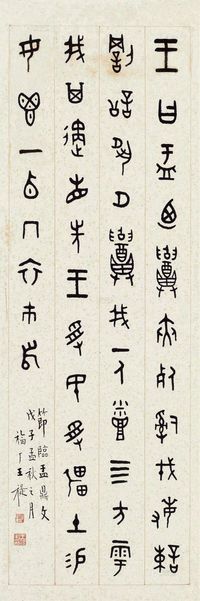 王曰盂廼召夾死司戎敏諫
罰訟夙夕召我一人烝四方雩
我其遹省先王受民受疆土易
女鬯一卣冂衣巿舄
節臨盂鼎文
戊子孟秋之月
福厂王禔